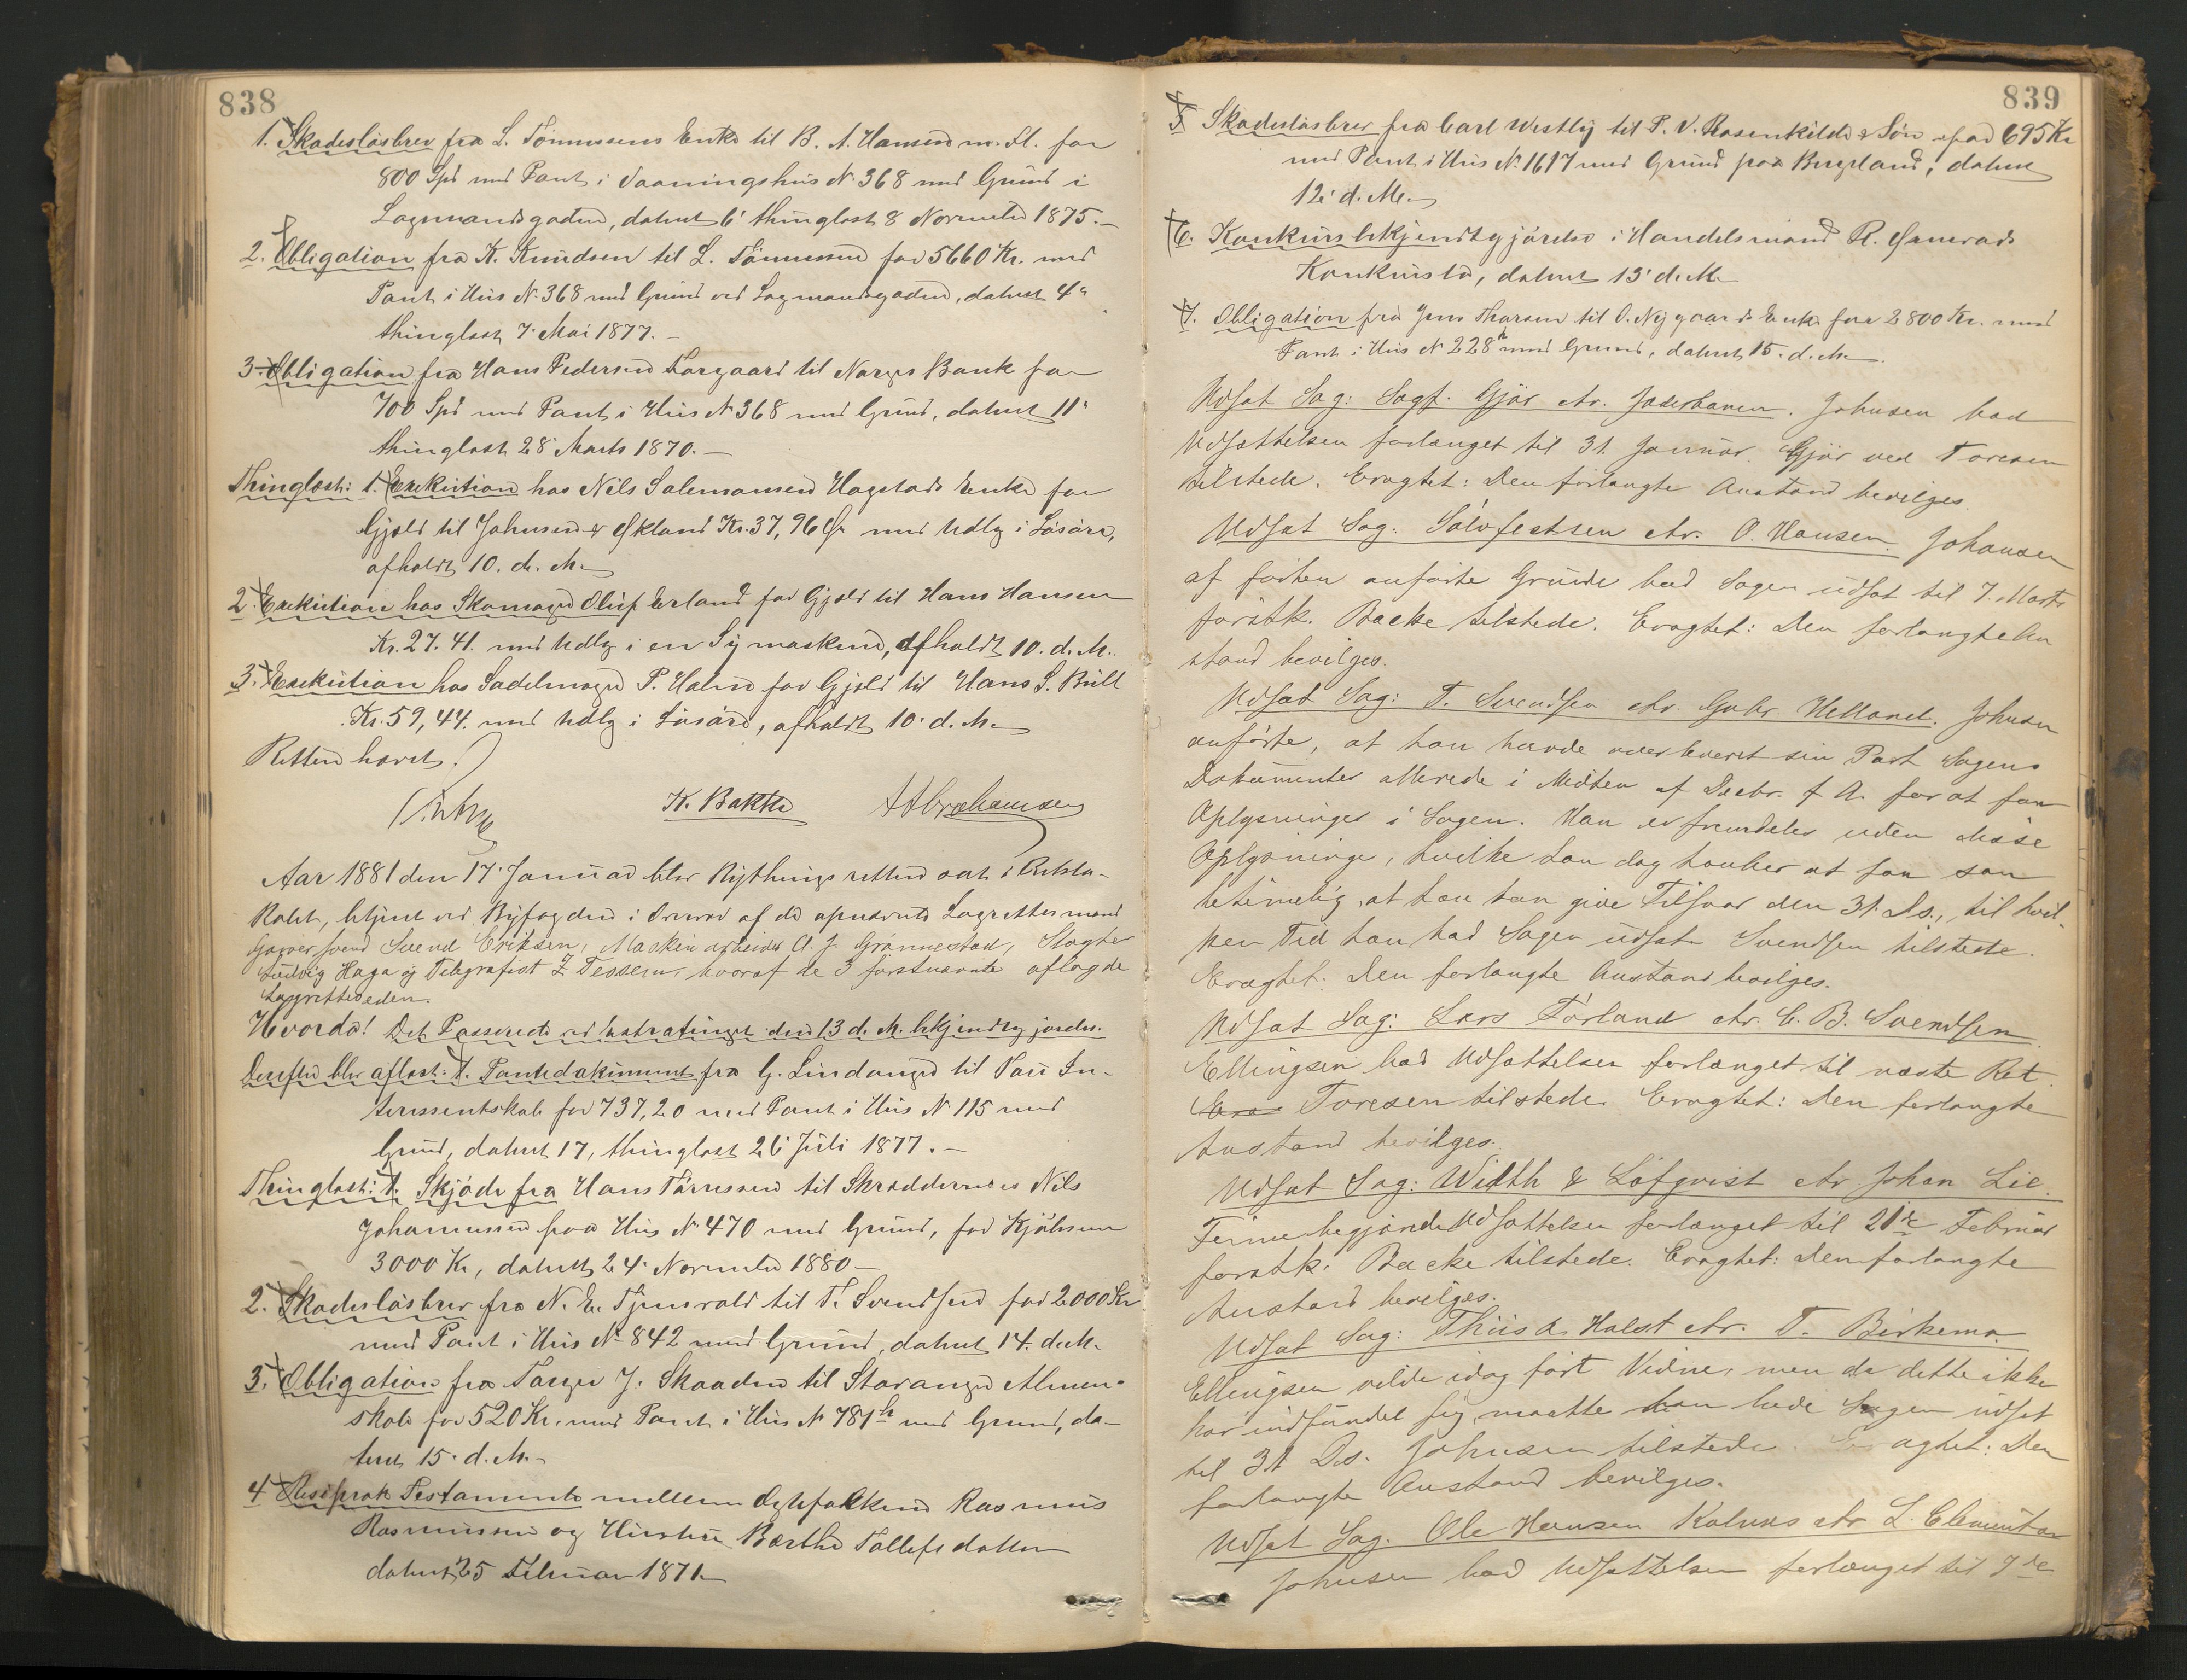 838
1. Skadesløsbrev fra L. Tønnessens Enke til B. A. Hansen m. fl. for
800 Spd med Pant i Vaaningshus N. 368 med Grund i
Lagmandsgaden, datert 6' thinglæst 8 November 1875.-
2. Obligation fra K. Knudsen til L. Tønnessen for 5660 Kr. med
Pant i Hus N. 368 med Grund ved Lagmandsgaden, datert 4'
thinglæst 7. Mai 1877.-
3. Obligation fra Hans Pedersen Torgaard til Norges Bank for
700 Spd med Pant i Hus N 368 med Grund, datert 11'
thinglæst 28' Marts 1870.-
Thinglæst: 1. Exekution hos Nils Salemonsens Hagstads Enke for
Gjæld til Johnsen & Økland Kr. 37,96 Øre med Udlæg i Løsøre,
afholdt 10. d. M.
2. Exekution hos Skomager Oluf Erland for Gjæld til Hans Hansen
Kr. 27.41. med Udlæg i en Symaskine, afholdt 10. d. M.
3. Exekution hos Sadelmager P. Holm for Gjæld til Hans S. Bull
Kr. 59,44. med Udlæg i Løsøre, afholdt 10. d. M.
Retten hævet.
K. Bakke Abrahamsen
Aar 1881 den 17' Januar blev Bythingsretten sat i Retslo-
kalet, betjent ved Byfogden i Overvær af de opnævnte Lagrettesmænd
Garversvend Svend Eriksen, Maskinarbeider A. J. Grønnestad, Slagter
Ludvig Haga og Telegrafist Z Tessem, hvoraf de 3 førstnævnte aflagde
Lagretteseden.
Hvorda! Det Passerede ved Extratinget den 13 d. M. bekjendtgjordes.
Derefter blev aflæst: 1. Pantedokument fra G. Lindanger til Tau In-
teressentskab for 737,20 med Pant i Hus N 115 med
Grund, datert 17, thinglæst 26' Juli 1877.-
Thinglæst: 1. Skjøde fra Hans Tørressen til Skræddermes Nils
Johannessen paa Hus N. 470 med Grund, for Kjøbesum
3000 Kr, datert 24' November 1880-
2. Skadesløsbrev fra N. E. Tjensvold til T. Svendsen for 2000 Kr
med Pant i Hus N. 842 med Grund, datert 14. d. M.
3. Obligation fra Torger J. Skaaden til Stavanger Almen-
skole for 520 Kr. med Pant i Hus N 781 b med Grund, da-
teret 15. d. M.
4 Resiprok Testamente mellem Ægtefolkene Rasmus
Rasmussen og Hustru Berthe Tollefsdatter
datert 25 Februar 1871
839
5 Skadesløsbrev fra Carl Westly til P. V. Rosenkilde & Søn for 695 Kr
med Pant i Hus N. 1617 med Grund paa Bergeland, datert
12' d. M.
6. Konkursbekjendtgjørelse i Handelsmand R.
Konkursbo, datert 13' d. M.
7. Obligation fra Jens Thorsen til O. Nygaards Enke for 2800 Kr. med
Pant i Hus N 228 b med Grund, datert 15. d. M.
Udsat Sag: Sagf. Gjør ctr. Jæderbanen. Johnsen bad
Udsættelsen forlænget til 31. Januar. Gjør ved Toresen
tilstede. Eragtet: Den forlangte Anstand bevilges.
Udsat Sag: Sølvfestsen ctr. O. Hansen. Johansen
af førhen anførte Grunde bad Sagen udsat til 7. Marts
førstk. Backe tilstede. Eragtet: Den forlangte An
stand bevilges.
Udsat Sag: T. Svendsen ctr. Gabr Helland. Johnsen
anførte, at han havde overleveret sin Part Sagens
Dokumenter allerede i Midten af Decbr. f A. for at faa
Oplysninger i Sagen. Han er fremdeles uden disse
Oplysninger, hvilke han dog haaber at faa saa
betimelig, at han kan give Tilsvar den 31. Ds., til hvil-
ken Tid han bad Sagen udsat. Svendsen tilstede.
Eragtet: Den forlangte Anstand bevilges.
Udsat Sag: Lars Førland ctr. C. B. Svendsen.
Ellingsen bad Udsættelsen forlænget til næste Ret.
Era Toresen tilstede. Eragtet: Den forlangte
Anstand bevilges.
Udsat Sag: Width & Löfqvist ctr Johan Lie.
Feiuebegjærede Udsættelsen forlænget til 21de Februar
førstk. Backe tilstede. Eragtet: Den forlangte
Anstand bevilges.
Udsat Sag: Thiis & Holst ctr. T. Birkemo.
Ellingsen vilde idag ført Vidne, men da dette ikke
har indfundet sig, maatte han bede Sagen udsat
til 31 Ds. Johnsen tilstede. Eragtet: Den
forlangte Anstand bevilges.
Udsat Sag. Ole Hansen Kolnes ctr L. Clementsen
Johnsen bad Udsættelsen forlænget til 7de